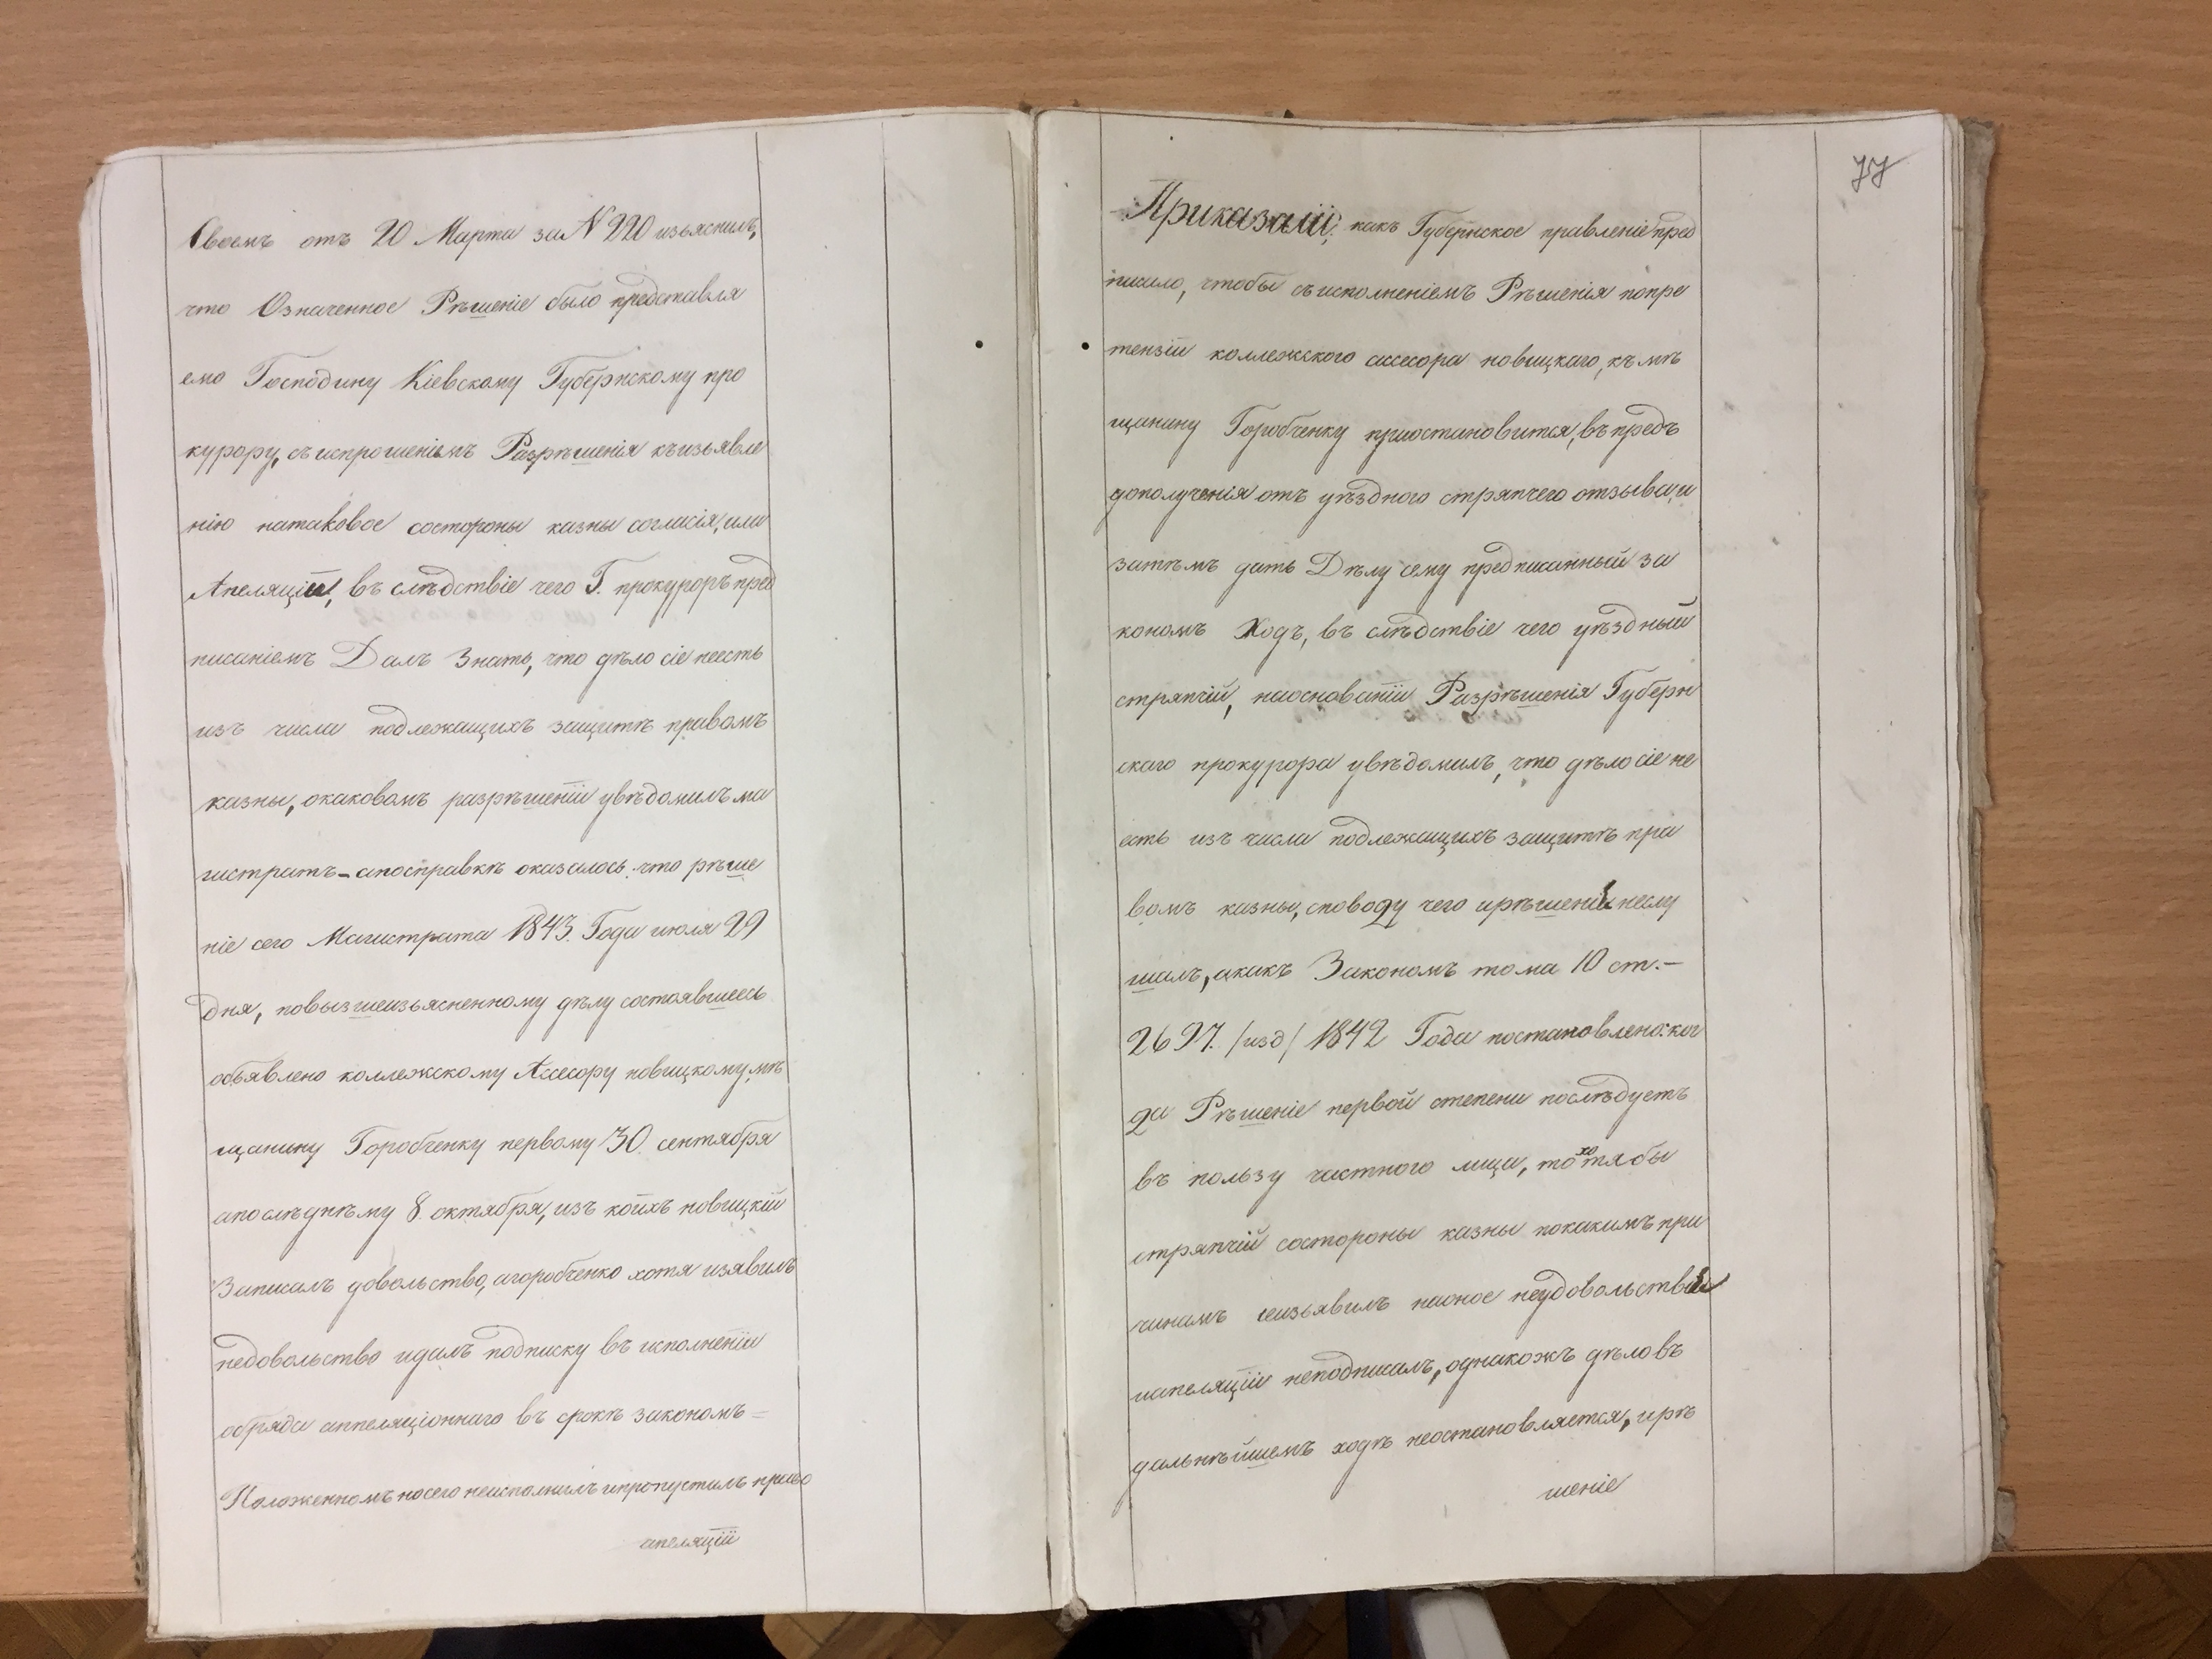 Своемъ отъ 20 Марта за N 220 изъяснилъ,
что Означенное Рѣшеніе было представля
емо Господину Кіевскому Губернскому про
курору, съ испрошеніемъ Разрѣшенія къ изъявле
нію на таковое со стороны казны согласія, или
Апеляціи, въ слѣдствіе чего Г. прокуроръ пред
писаніемъ Далъ Знать, что дѣло сіе неесть
изъ числа подлежащихъ защитѣ правомъ
казны, окаковомъ разрѣшеніи увѣдомилъ ма
гистратъ – апосправкѣ оказалось: что рѣше
ніе сего Магистрата 1843. Года июля 29
дня, повызшеизъясненному дѣлу состоявшеесь
объявлено коллежскому Ассесору новицкому, мѣ
щанину Горобченку первому 30. сентября
апослѣднѣму 8. октября, изъ коихъ новицкій
Записалъ удовольство, агоробченко хотя изявилъ
недовольство идалъ подписку въ исполненіи
обряда аппеляціоннаго въ срокѣ закономъ =
Положенномъ насего неисполнилъ ипропустилъ право
апеляціи
77
Приказали: какъ Губернское правленіе пред
писало, чтобы съисполненіемъ Рѣшенія попре
тензіи коллежского ассесора новицкаго, къ мѣ
щанину Горобченку приостановится, въ предъ
дополученія отъ уѣздного стряпчего отзыва, и
затѣмъ дать Дѣлу сему предписанный за
кономъ Ходъ, въ слѣдствіе чего уѣздный
стряпчій, наоснованіи Разрѣшенія Губерн
скаго прокурора увѣдомилъ, что дѣло сіе не
есть изъ числа подлежащихъ защитѣ пра
вомъ казны, споводу чего ирѣшенія неслу
шалъ, акакъ Закономъ тома 10 ст. –
2697. /изд/ 1842 Года постановлено: ког
да Рѣшеніе первой степени послѣдуетъ
въ пользу частного лица, то хотябы
стряпчій состороны казны покакимъ при
чинамъ неизъявилъ наоное неудовольствія
иапеляціи неподписалъ, однакожъ дѣло въ
дальнѣйшемъ ходѣ неостановляется, ирѣ
шеніе